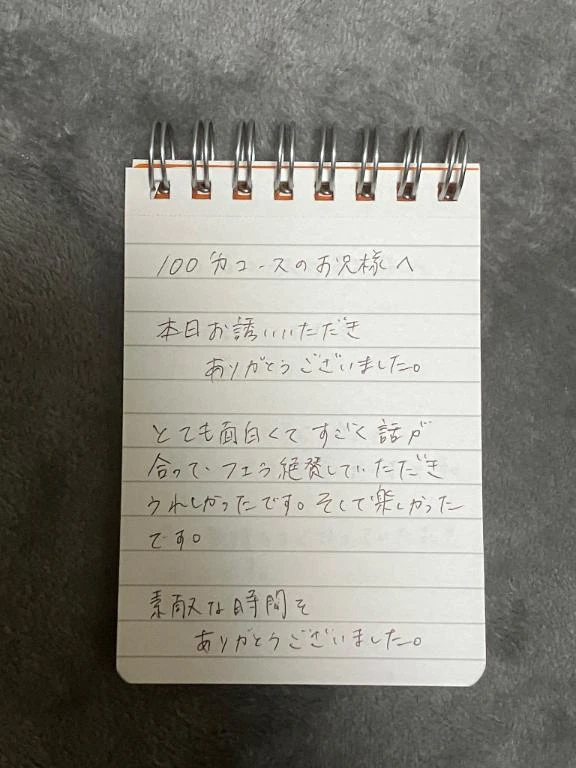 100分コースのお兄様へ
本日お誘いいただき
ありがとうございました。
とても面白くてすごく話が
合って、フェラ絶賛していただき
うれしかったです。そして楽しかった
です。
素敵な時間を
ありがとうございました。